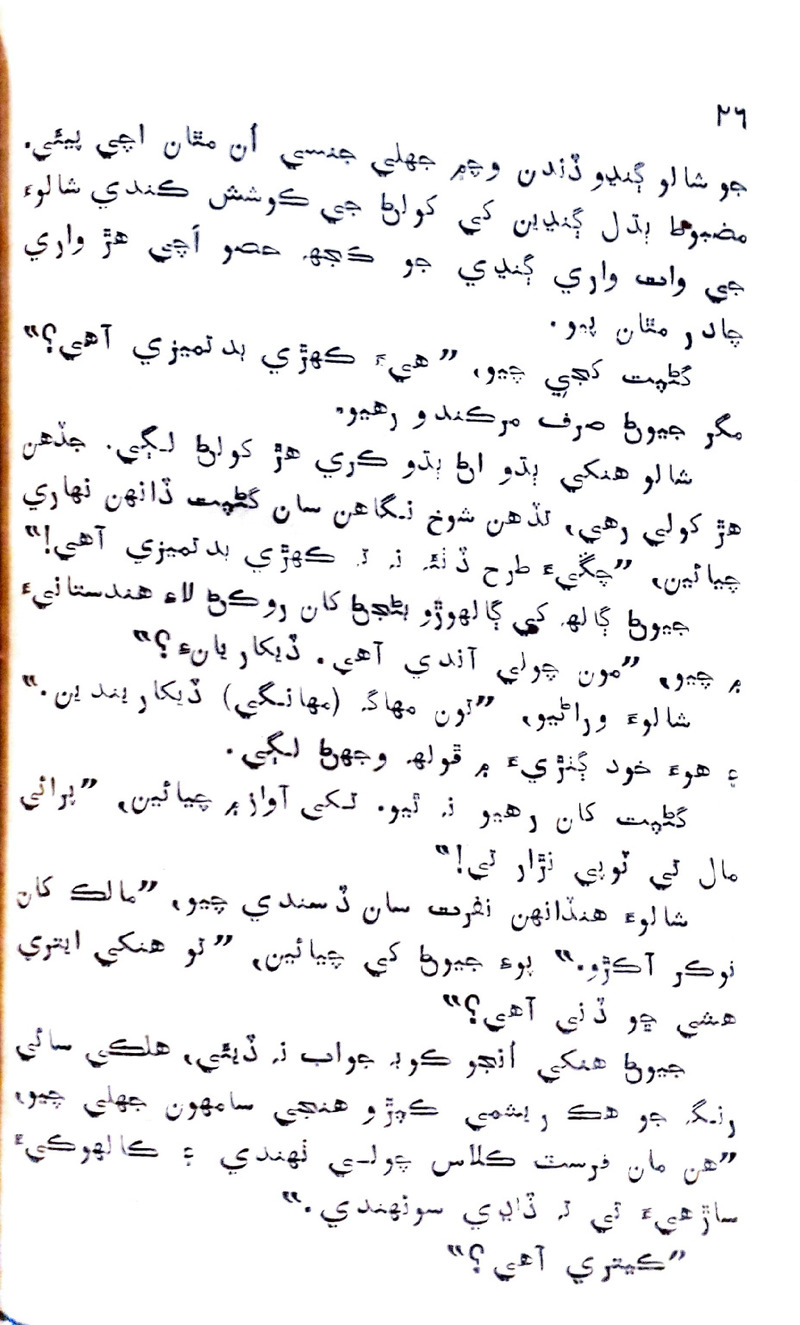 ٢٦
جو شالو ڳنڍيو ڏندن وچ۾ جهلي جنسي اُن مٿان اچي پيئي.
مضبوط ٻڌل ڳنڍين کي کولڻ جي ڪوشش ڪندي شالوءَ
جي وات واري ڳنڍي جو ڪجهه حصو اُچي هڙ واري
چادر مٿان پيو.
گڻپت کجي چيو، ”هيءَ ڪهڙي بدتميزي آهي؟“
مگر جيوڻ صرف مرڪندو رهيو.
شالو هنکي ٻڌو اڻ ٻڌو ڪري هڙ کولڻ لڳي. جڏهن
هڙ کولي رهي، تڏهن شوخ نگاهن سان گڻپت ڏانهن نهاري
چيائين، ”چڱيءَ طرح ڏٺئه نه ته ڪهڙي بدتميزي آهي!“
جيوڻ ڳالهه کي ڳالهوڙو بڻجڻ کان روڪڻ لاءِ هندستانيءَ
۾ چيو، ”مون چولي آندي آهي. ڏيکاريانءِ؟“
شالوءَ وراڻيو، ”تون مهاگه (مهانگي) ڏيکاريندين.“
۽ هوءَ خود ڳنڙيءَ ۾ ڦولهه وجهڻ لڳي.
گڻپت کان رهيو نه ٿيو. تکي آواز ۾ چيائين، ”پرائي
مال تي ٽوپي نڙار تي!“
شالوءَ هنڏانهن نفرت سان ڏسندي چيو، ”مالڪ کان
نوڪر آڪڙو.“ پوءِ جيوڻ کي چيائين، ”تو هنکي ايتري
هشي ڇو ڏني آهي؟“
جيوڻ هنکي اُنجو ڪوبه جواب نه ڏيئي، هلڪي سائي
رنگه جو هڪ ريشمي ڪپڙو هنجي سامهون جهلي چيو،
”هن مان فرسٽ ڪلاس چولي ٺهندي ۽ ڪالهوڪيءَ
ساڙهيءَ تي ته ڏاڍي سونهندي.“
”ڪيتري آهي؟“